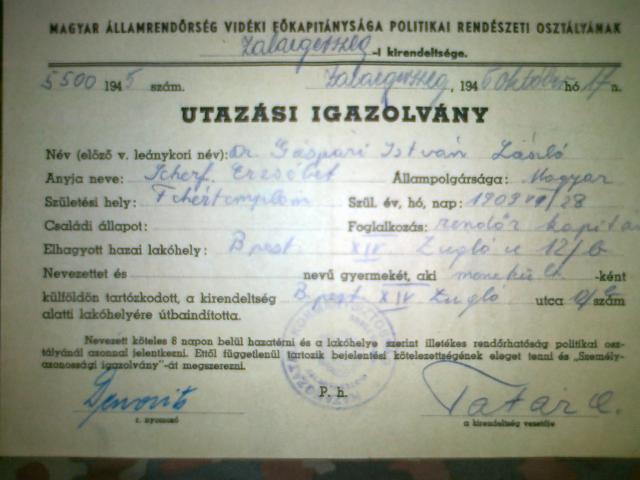 MAGYAR ÁLLAMRENDŐRSÉG VIDÉKI FŐKAPITÁNYSÁGA POLITIKAI RENDÉSZETI OSZTÁLYÁNAK
Zalaegerszeg -i kirendeltsége.
5500 1945 szám. Zalaegerszeg, 1945 október hó 17 n.
UTAZÁSI IGAZOLVÁNY
Név (előző v. leánykori név): Dr. Gáspári István László
Anyja neve: Scherf Erzsébet Állampolgársága: Magyar
Születési hely: Fehértemplom Szül. év, hó, nap: 1909 28
Családi állapot: Foglalkozás: rendőr kapitán
Elhagyott hazai lakóhely: Bpest XIV Zugló u 12/b
Nevezettet és nevű gyermekét, aki menekült -ként
külföldön tartózkodott, a kirendeltség Bpest XIV Zugló utca szám
alatti lakóhelyére útbaindította.
Nevezett köteles 8 napon belül hazatérni és a lakóhelye szerint illetékes rendőrhatóság politikai osz-
tályánál azonnal jelentkezni. Ettől függetlenül tartozik bejelentési kötelezettségének eleget tenni és „Személy-
azonossági igazolvány"-át megszerezni.
P. h. Tatár
r. nyomozó a kirendeltség vezetője